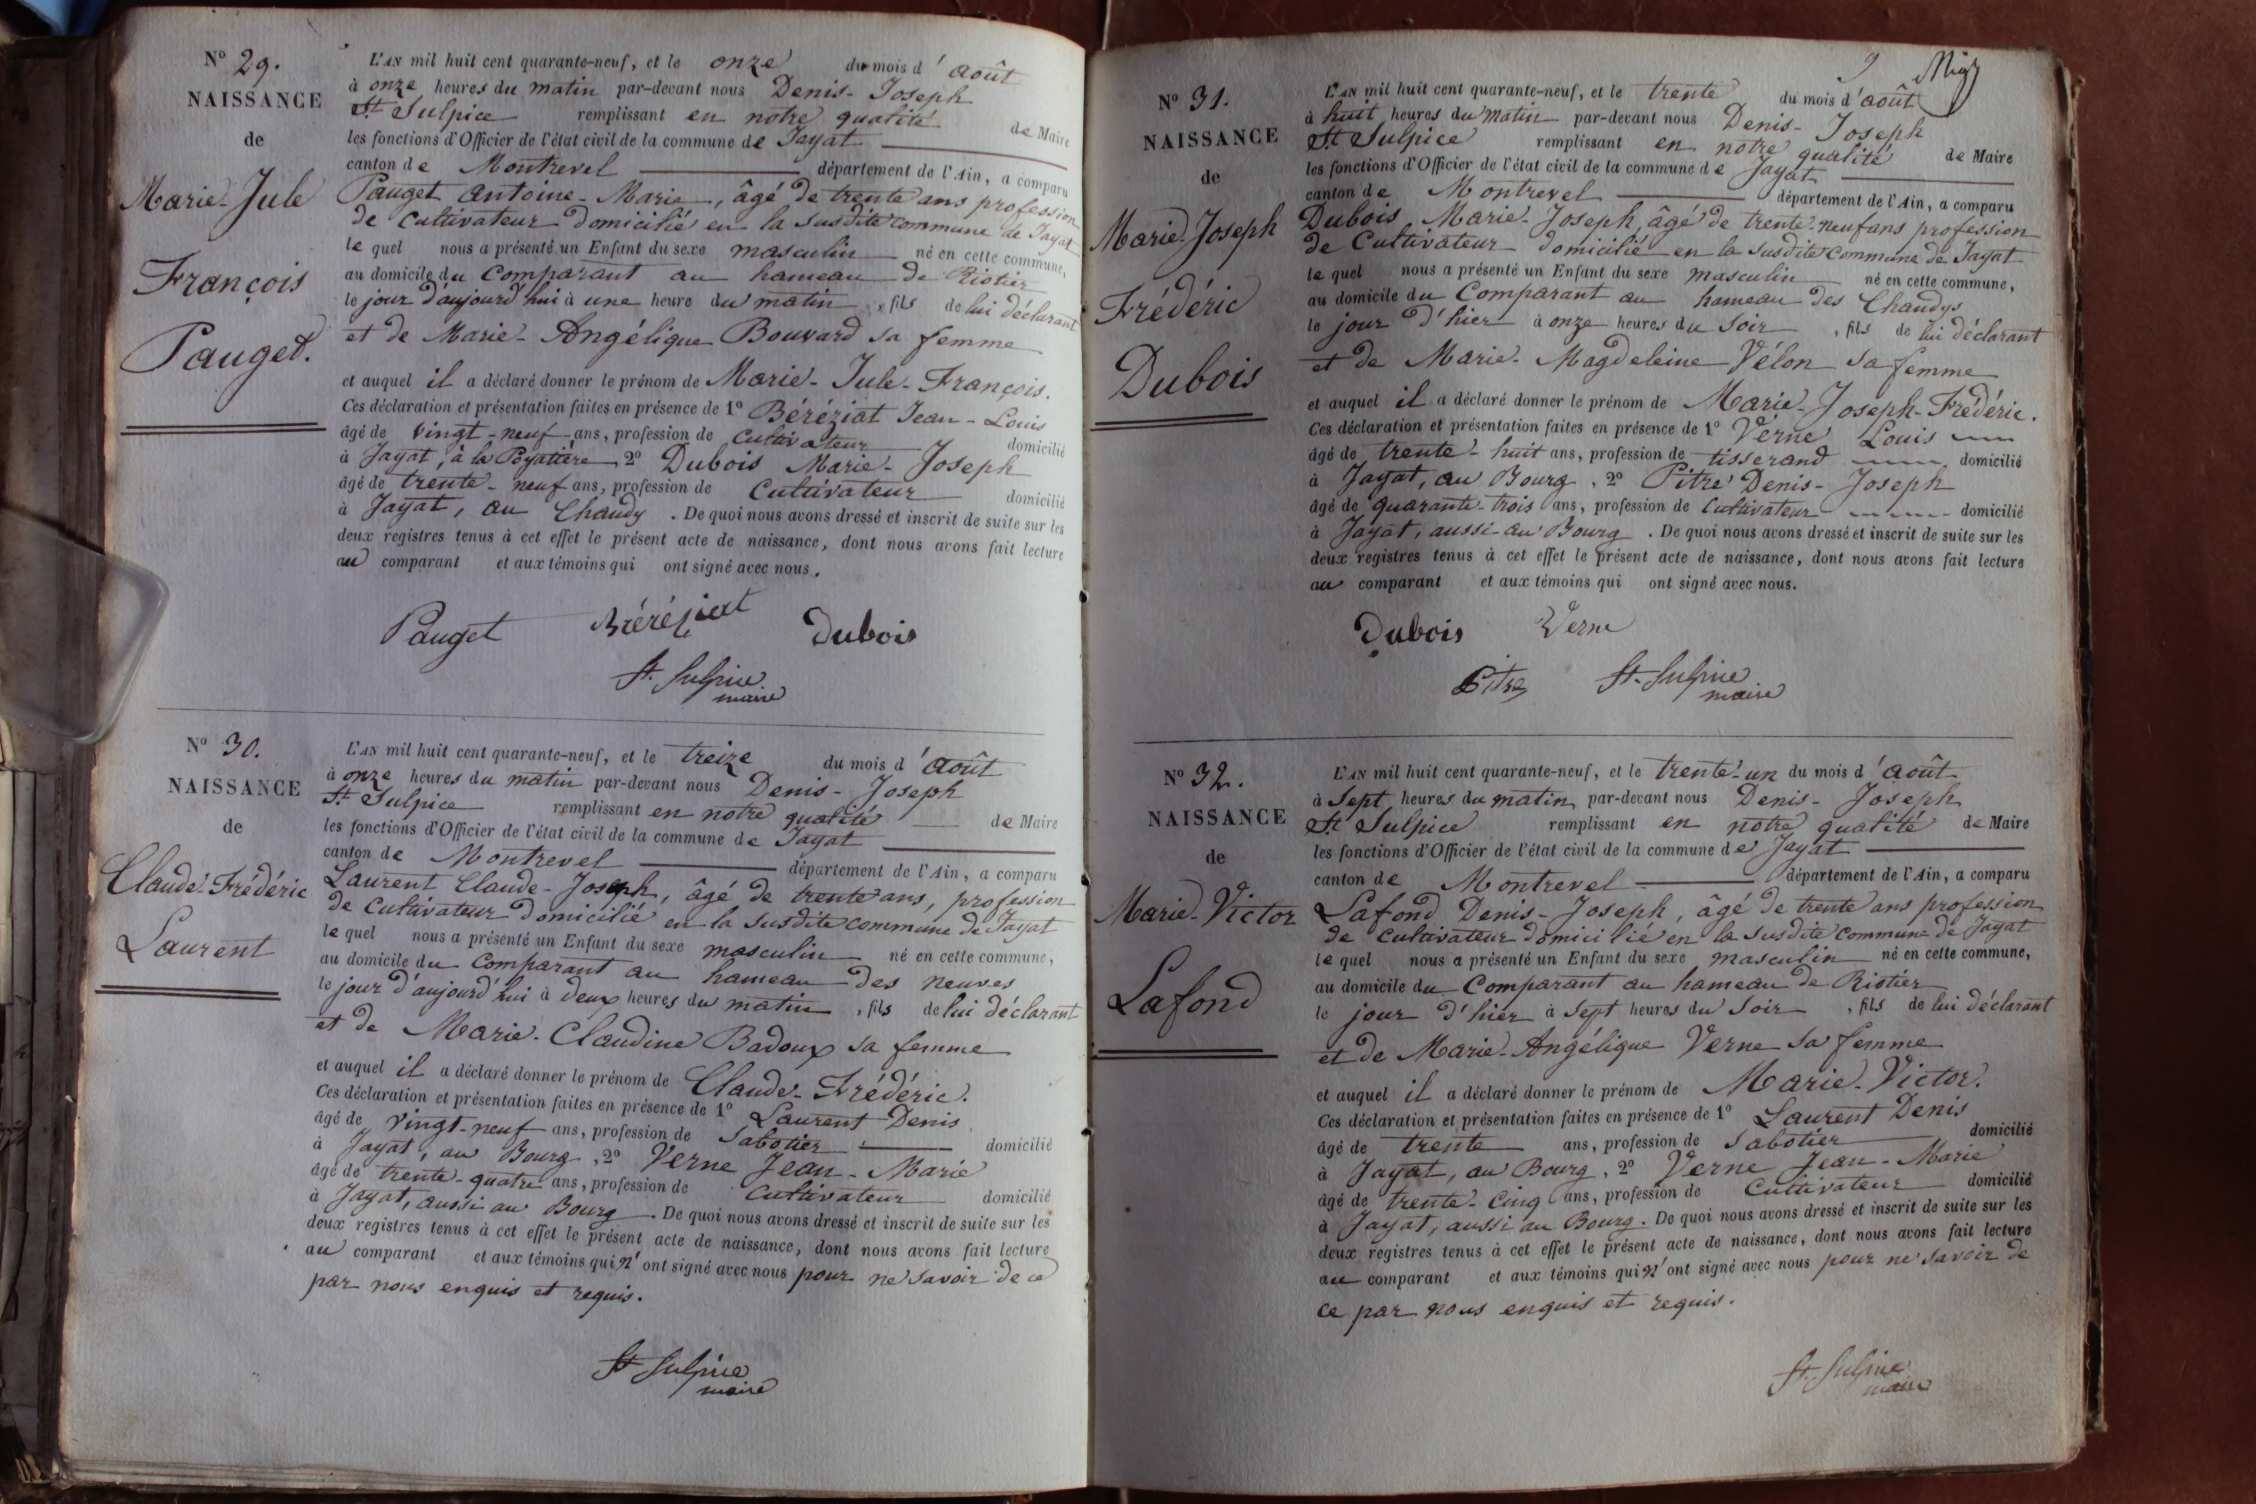 Nº 29.
NAISSANCE
de
Marie-Jule
François
Pauget.
L'AN mil huit cent quarante-neuf, et le onze du mois d'août
à onze heures du matin par-devant nous Denis-Joseph
St Sulpice remplissant en notre qualité de Maire
les fonctions d'Officier de l'état civil de la commune de Jayat
canton de Montrevel département de l'Ain, a comparu
Pauget Antoine-Marie, âgé de trente ans profession
de cultivateur domicilié en la susdite commune de Jayat
le quel nous a présenté un Enfant du sexe masculin né en cette commune,
au domicile du comparant au hameau de Riotier
le jour d'aujourd'hui à une heure du matin, fils de lui déclarant
et de Marie-Angélique Bouvard sa femme
et auquel il a déclaré donner le prénom de Marie-Jule-François.
Ces déclaration et présentation faites en présence de 1º Béréziat Jean-Louis
âgé de vingt-neuf ans, profession de cultivateur domicilié
à Jayat, à la Poyatière 2º Dubois Marie-Joseph
âgé de trente-neuf ans, profession de cultivateur domicilié
à Jayat, au Chaudy. De quoi nous avons dressé et inscrit de suite sur les
deux registres tenus à cet effet le présent acte de naissance, dont nous avons fait lecture
au comparant et aux témoins qui ont signé avec nous.
Pauget Béréziat Dubois
St. Sulpice
maire
Nº 30.
NAISSANCE
de
Claude-Frédéric
Laurent
L'AN mil huit cent quarante-neuf, et le treize du mois d'août
à onze heures du matin par-devant nous Denis-Joseph
St Sulpice remplissant en notre qualité de Maire
les fonctions d'Officier de l'état civil de la commune de Jayat
canton de Montrevel département de l'Ain, a comparu
Laurent Claude-Joseph, âgé de trente ans, profession
de cultivateur domicilié en la susdite commune de Jayat
le quel nous a présenté un Enfant du sexe masculin né en cette commune,
au domicile du comparant au hameau des neuves
le jour d'aujourd'hui à deux heures du matin, fils de lui déclarant
et de Marie-Claudine Badoux sa femme
et auquel il a déclaré donner le prénom de Claude-Frédéric.
Ces déclaration et présentation faites en présence de 1º Laurent Denis
âgé de vingt-neuf ans, profession de sabotier domicilié
à Jayat, au Bourg, 2º Verne Jean-Marie
âgé de trente-quatre ans, profession de cultivateur domicilié
à Jayat, aussi au Bourg. De quoi nous avons dressé et inscrit de suite sur les
deux registres tenus à cet effet le présent acte de naissance, dont nous avons fait lecture
au comparant et aux témoins qui n'ont signé avec nous pour ne savoir de ce
par nous enquis et requis.
St Sulpice
maire
9
Nº 31.
NAISSANCE
de
Marie-Joseph
Frédéric
Dubois
L'AN mil huit cent quarante-neuf, et le trente du mois d'août
à huit heures du matin par-devant nous Denis-Joseph
St Sulpice remplissant en notre qualité de Maire
les fonctions d'Officier de l'état civil de la commune de Jayat
canton de Montrevel département de l'Ain, a comparu
Dubois Marie-Joseph, âgé de trente-neuf ans profession
de cultivateur domicilié en la susdite commune de Jayat
le quel nous a présenté un Enfant du sexe masculin né en cette commune,
au domicile du comparant au hameau des Chaudys
le jour d'hier à onze heures du soir, fils de lui déclarant
et de Marie-Magdeleine Vélon sa femme
et auquel il a déclaré donner le prénom de Marie-Joseph-Frédéric.
Ces déclaration et présentation faites en présence de 1º Verne Louis
âgé de trente-huit ans, profession de tisserand domicilié
à Jayat, au Bourg, 2º Pitre Denis-Joseph
âgé de quarante-trois ans, profession de cultivateur domicilié
à Jayat, aussi au Bourg. De quoi nous avons dressé et inscrit de suite sur les
deux registres tenus à cet effet le présent acte de naissance, dont nous avons fait lecture
au comparant et aux témoins qui ont signé avec nous.
Dubois Verne
Pitre St. Sulpice
maire
Nº 32.
NAISSANCE
de
Marie-Victor
Lafond
L'AN mil huit cent quarante-neuf, et le trente-un du mois d'août
à sept heures du matin par-devant nous Denis-Joseph
St Sulpice remplissant en notre qualité de Maire
les fonctions d'Officier de l'état civil de la commune de Jayat
canton de Montrevel département de l'Ain, a comparu
Lafond Denis-Joseph, âgé de trente ans profession
de cultivateur domicilié en la susdite commune de Jayat
le quel nous a présenté un Enfant du sexe masculin né en cette commune,
au domicile du comparant au hameau de Riotier
le jour d'hier à sept heures du soir, fils de lui déclarant
et de Marie-Angélique Verne sa femme
et auquel il a déclaré donner le prénom de Marie-Victor.
Ces déclaration et présentation faites en présence de 1º Laurent Denis
âgé de trente ans, profession de sabotier domicilié
à Jayat, au Bourg, 2º Verne Jean-Marie
âgé de trente-cinq ans, profession de cultivateur domicilié
à Jayat, aussi au Bourg. De quoi nous avons dressé et inscrit de suite sur les
deux registres tenus à cet effet le présent acte de naissance, dont nous avons fait lecture
au comparant et aux témoins qui n'ont signé avec nous pour ne savoir de
ce par nous enquis et requis.
St. Sulpice
maire